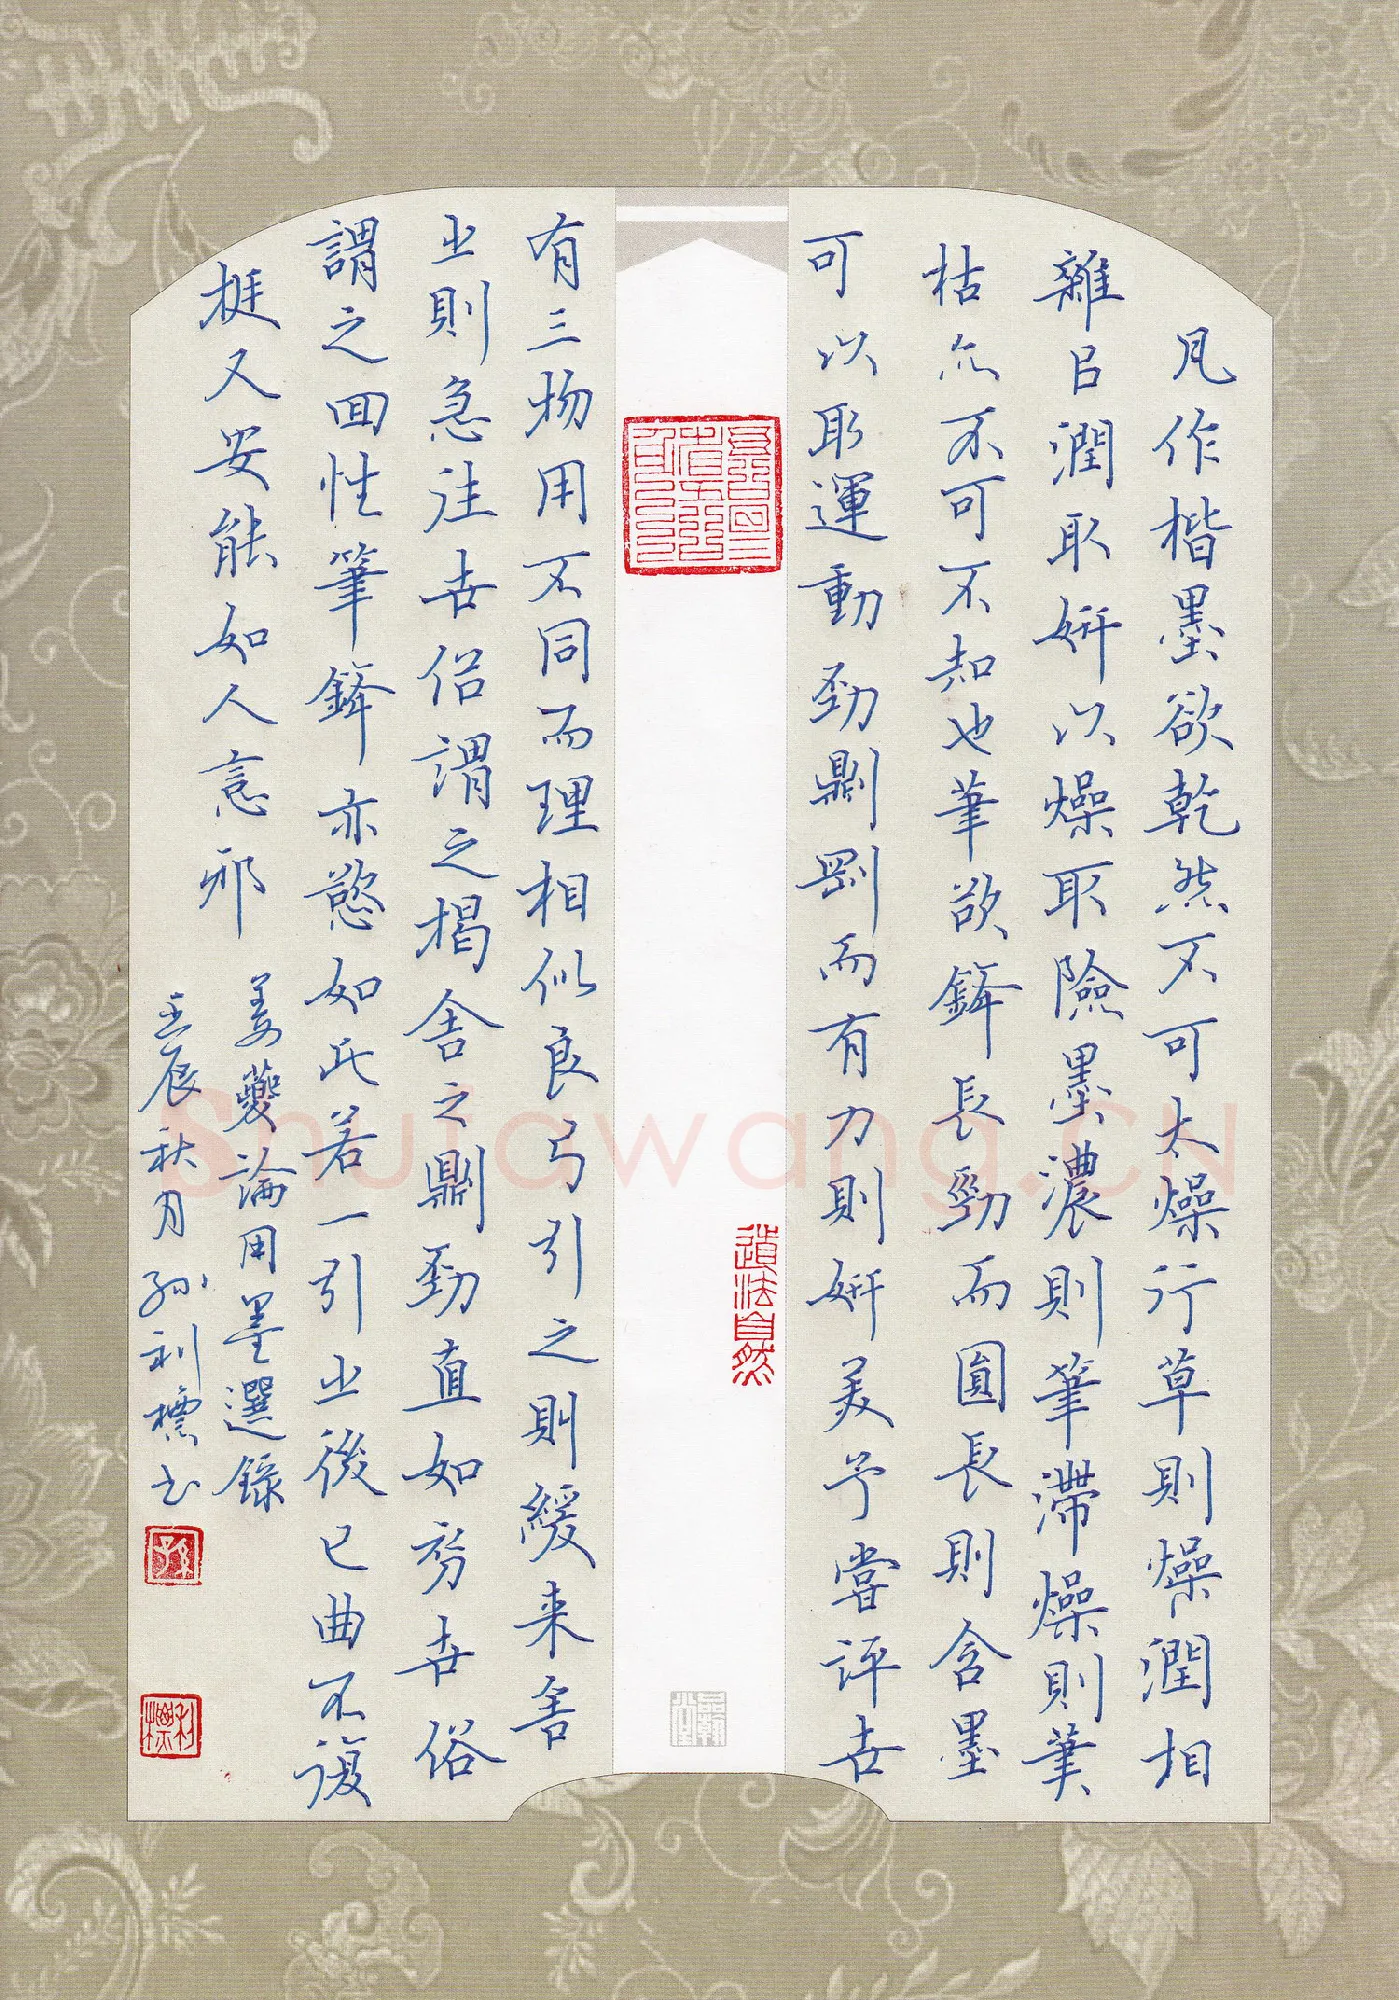 凡作楷墨欲乾然不可太燥行草則燥潤相
雜㠯潤取妍以燥取險墨濃則筆滯燥則筆
枯亦不可不知也筆欲鋒長勁而圓長則含墨
可以取運動勁則剛而有力則妍美予嘗評世
有三物用不同而理相似良弓引之則緩来舍
之則急往世俗謂之揭舍之則勁直如初世俗
謂之回性筆鋒亦慾如此若一引之後已曲不復
挺又安能如人意邪
姜夔論用墨選錄
壬辰秋月孫利標书
道法自然
孫
利標
Shufawang.CN